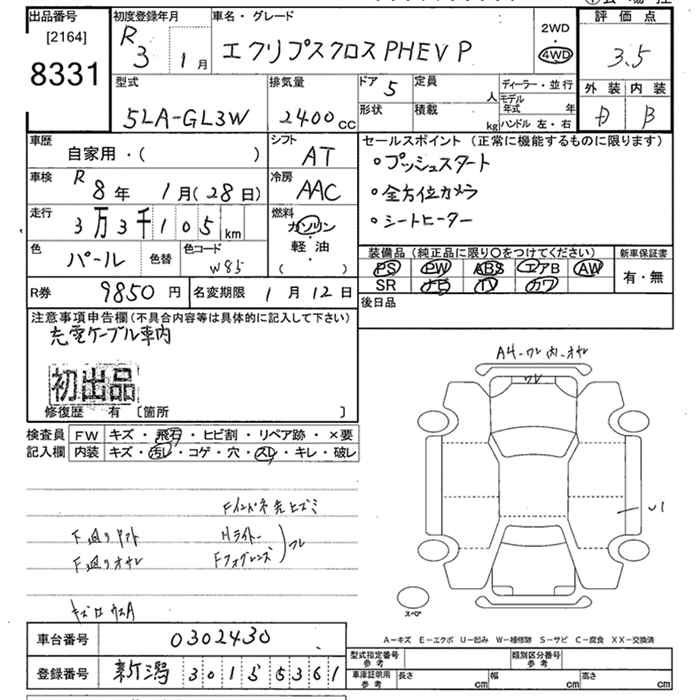 出品番号
[2164]
8331
初度登録年月
R 3 1月
車名・グレード
エクリプスクロスPHEV P
2WD
4WD
評価点
3.5
型式
5LA-GL3W
排気量
2400CC
ドア 5
定員 人
形状
積載 kg
ディーラー・並行
モデル年式 年
ハンドル 左・右
外装 内装
B
車歴
自家用・( )
シフト
AT
セールスポイント (正常に機能するものに限ります)
・プッシュスタート
・全方位カメラ
・シートヒーター
車検
R 8年 1月(28日)
冷房
AAC
走行
3万3千105km
燃料
ガソリン
軽・油
( )
色
パール
色替
色コード
W85
装備品 (純正品に限り○をつけてください)
PS PW ABS エアB AW
SR ナビ TV カワ
新車保証書
有・無
R券
9850円
名変期限 1月12日
後日品
注意事項申告欄(不具合内容等は具体的に記入して下さい)
充電ケーブル車内
初出品
修復歴 有 [箇所 ]
検査員記入欄
FW キズ・飛石・ヒビ割・リペア跡・×要
内装 キズ・汚レ・コゲ・穴・スレ・キレ・破レ
A4-ワレ
ワレ
U1
Hライト
ワレ
スペア
車台番号
0302430
登録番号
新潟 301 5361
A-キズ E-エクボ U-凹み W-補修跡 S-サビ C-腐食 XX-交換済
型式指定番号 参考
類別区分番号 参考
車庫証明用 参考
長さ cm
幅 cm
高さ cm